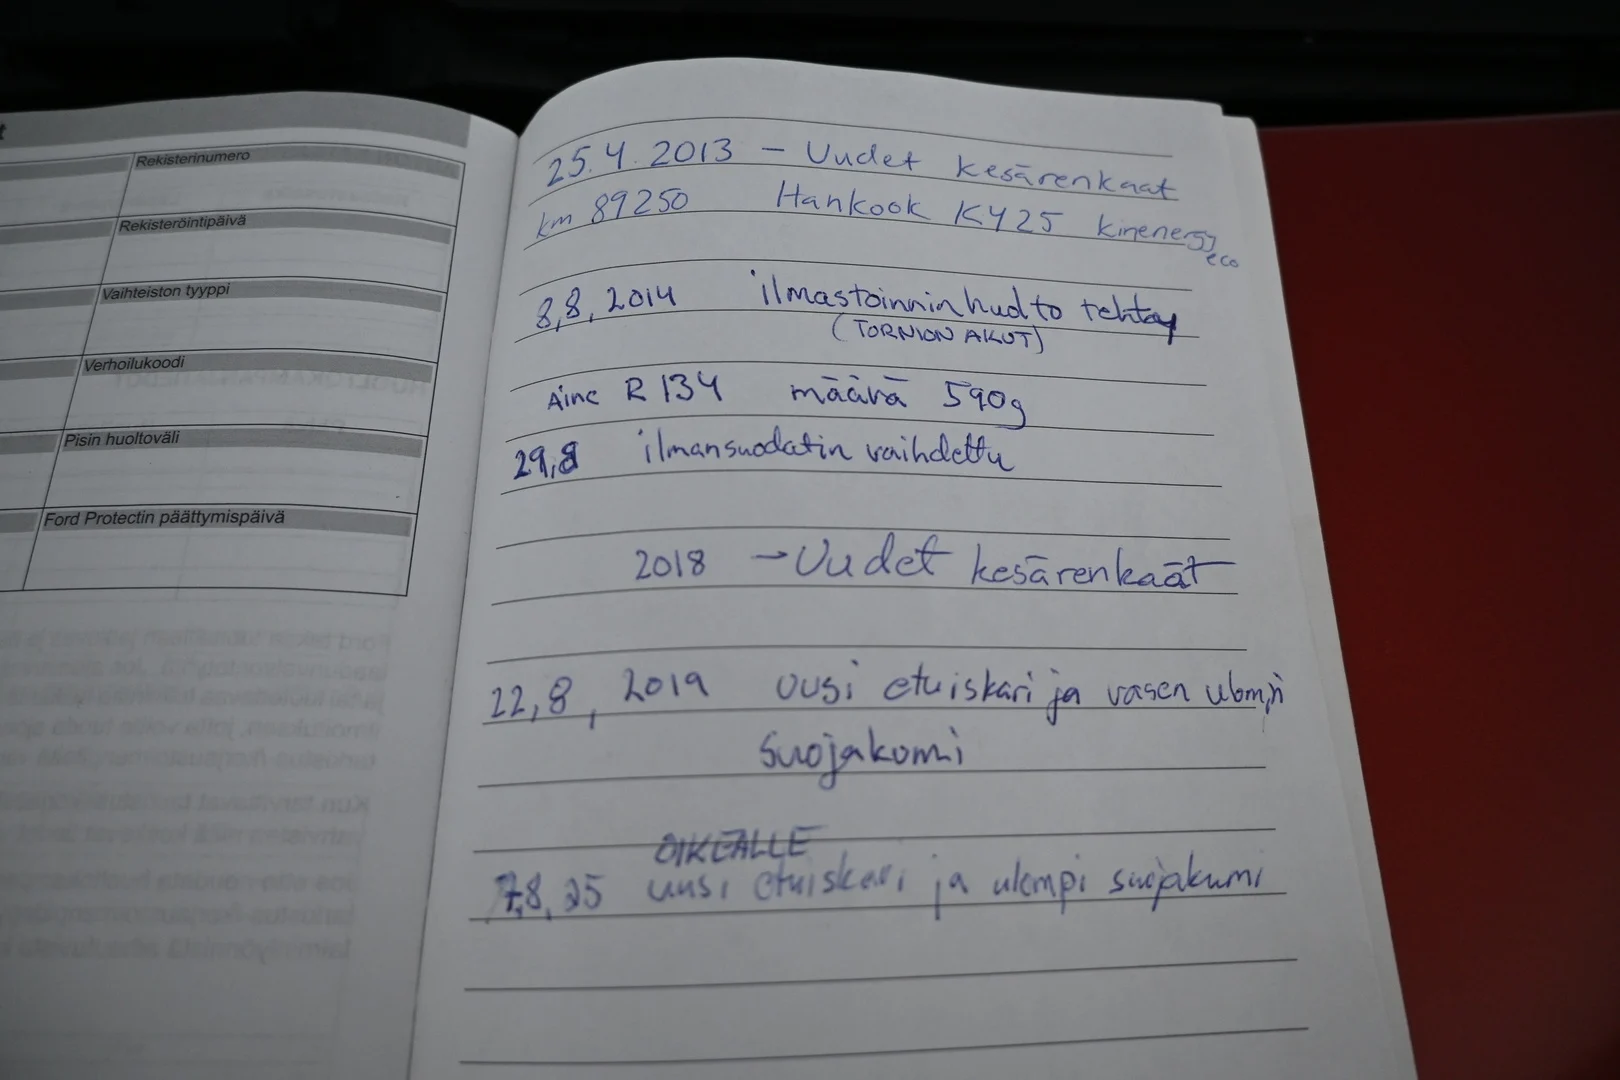 Rekisterinumero
Rekisteröintipäivä
Vaihteiston tyyppi
Verhoilukoodi
Pisin huoltoväli
Ford Protectin päättymispäivä
25.4.2013 – Uudet kesärenkaat
km 89250 Hankook K425 kinenergy
eco
8,8, 2014 ilmastoinninhuolto tehtay
(TORNION AKUT)
Aine R 134 määrä 590g
29,8 ilmansuodatin vaihdettu
2018 → Uudet kesärenkaat
22,8, 2019 uusi etuiskari ja vasen ulompi
suojakumi
OIKEALLE
7,8, 25 uusi etuiskari ja ulompi suojakumi